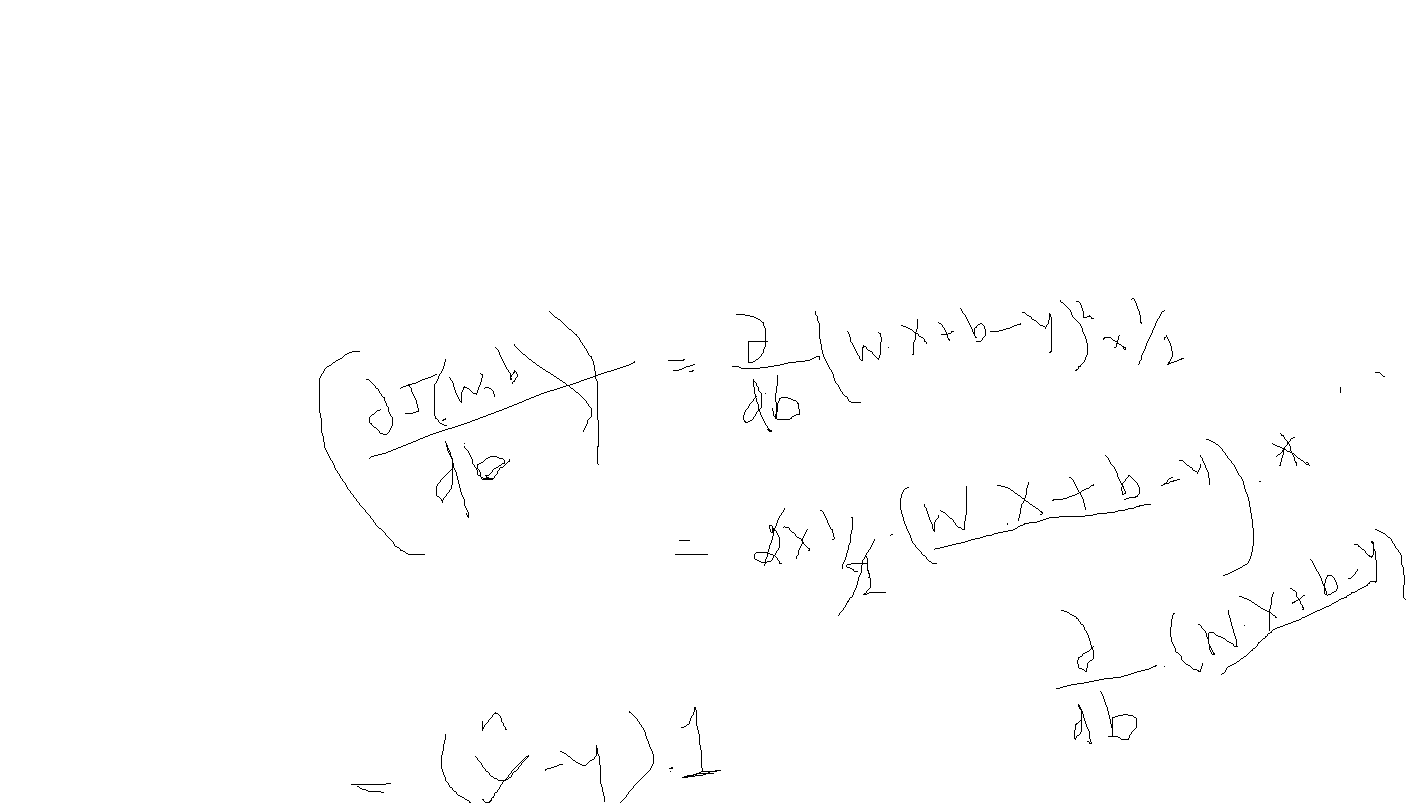 (∂J(w,b)/∂b) = ∂/∂b (W·X+b-y)² × 1/2
= 2×1/2 · (W·X+b-y) · *
∂/∂b · (W·X+b-y)
= (ŷ-y)·1